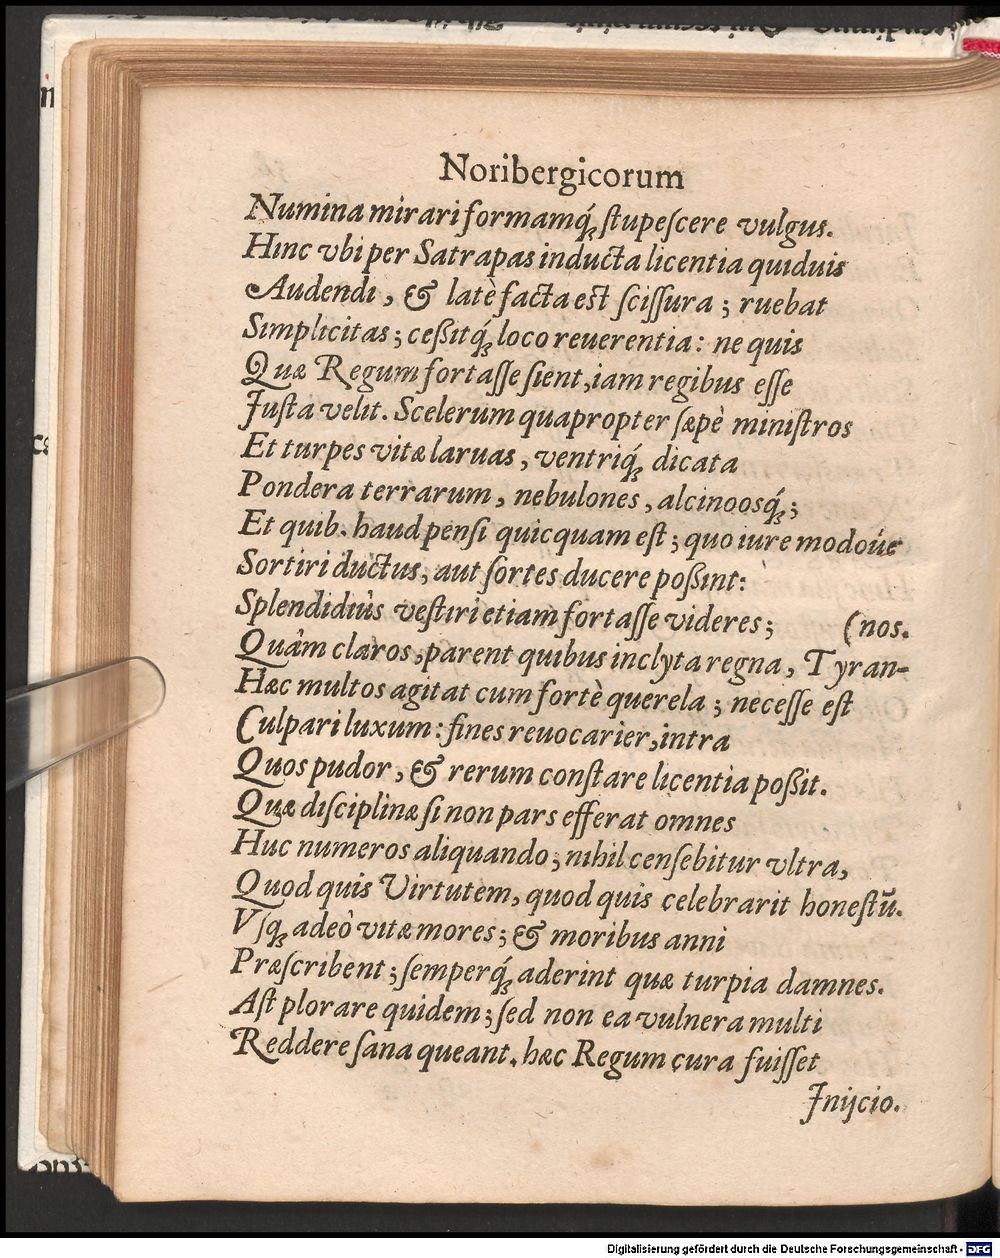 Noribergicorum
Numina mirari formamq́; ſtupeſcere vulgus.
Hinc vbi per Satrapas inducta licentia quiduis
Audendi, & latè facta est ſciſſura; ruebat
Simplicitas; ceßitq́; loco reuerentia: ne quis
Quæ Regum fortaſſe ſient, iam regibus eſſe
Juſta velit. Scelerum quapropter ſæpè miniſtros
Et turpes vitæ laruas, ventriq́; dicata
Pondera terrarum, nebulones, alcinoosq́;;
Et quib. haud penſi quicquam eſt; quo iure modoúe
Sortiri ductus, aut ſortes ducere poßint:
Splendidiùs veſtiri etiam fortaſſe videres; (nos.
Quàm claros, parent quibus inclyta regna, Tyran-
Hæc multos agitat cum fortè querela; neceſſe eſt
Culpari luxum: fines reuocarier, intra
Quos pudor, & rerum conſtare licentia poßit.
Quæ diſciplinæ ſi non pars efferat omnes
Huc numeros aliquando; nihil cenſebitur vltra,
Quod quis Virtutem, quod quis celebrarit honeſtū.
Vſq; adeò vitæ mores; & moribus anni
Præſcribent; ſemperq́; aderint quæ turpia damnes.
Aſt plorare quidem; ſed non ea vulnera multi
Reddere ſana queant. hæc Regum cura fuiſſet
Jnijcio.
Digitalisierung gefördert durch die Deutsche Forschungsgemeinschaft - DFG